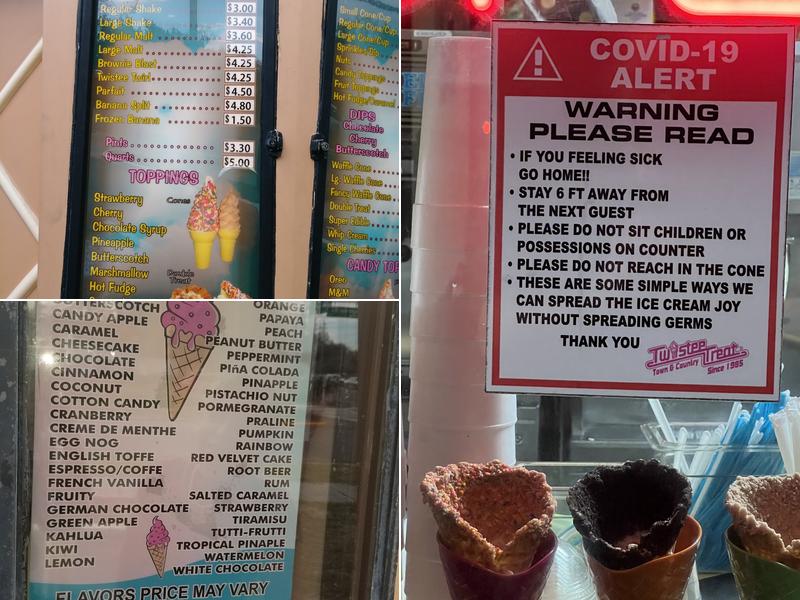 Regular Shake $3.00
Large Shake $3.40
Regular Malt $3.60
Large Malt $4.25
Brownie Blast $4.25
Twistee Twirl $4.25
Parfait $4.50
Banana Split $4.80
Frozen Banana $1.50
Pints $3.30
Quarts $5.00
TOPPINGS
Strawberry
Cherry
Chocolate Syrup
Pineapple
Butterscotch
Marshmallow
Hot Fudge
Cones
Double
Treat
Small Cone/Cup
Regular Cone/Cup
Large Cone/Cup
Sprinkles
Nuts
Candy Toppings
Fruit Toppings
Hot Fudge/Caramel
DIPS
Chocolate
Cherry
Butterscotch
Waffle Cone
Lg. Waffle Cone
Fancy Waffle Cone
Double Treat
Super Edible
Whip Cream
Single Cherries
CANDY TOP
Oreo
M&M
COVID-19
ALERT
WARNING
PLEASE READ
• IF YOU FEELING SICK
GO HOME!!
• STAY 6 FT AWAY FROM
THE NEXT GUEST
• PLEASE DO NOT SIT CHILDREN OR
POSSESSIONS ON COUNTER
• PLEASE DO NOT REACH IN THE CONE
• THESE ARE SOME SIMPLE WAYS WE
CAN SPREAD THE ICE CREAM JOY
WITHOUT SPREADING GERMS
THANK YOU
Twistee Treat
Town & Country Since 1985
BUTTERSCOTCH
CANDY APPLE
CARAMEL
CHEESECAKE
CHOCOLATE
CINNAMON
COCONUT
COTTON CANDY
CRANBERRY
CREME DE MENTHE
EGG NOG
ENGLISH TOFFE
ESPRESSO/COFFE
FRENCH VANILLA
FRUITY
GERMAN CHOCOLATE
GREEN APPLE
KAHLUA
KIWI
LEMON
ORANGE
PAPAYA
PEACH
PEANUT BUTTER
PEPPERMINT
PIñA COLADA
PINAPPLE
PISTACHIO NUT
PORMEGRANATE
PRALINE
PUMPKIN
RAINBOW
RED VELVET CAKE
ROOT BEER
RUM
SALTED CARAMEL
STRAWBERRY
TIRAMISU
TUTTI-FRUTTI
TROPICAL PINAPLE
WATERMELON
WHITE CHOCOLATE
FLAVORS PRICE MAY VARY